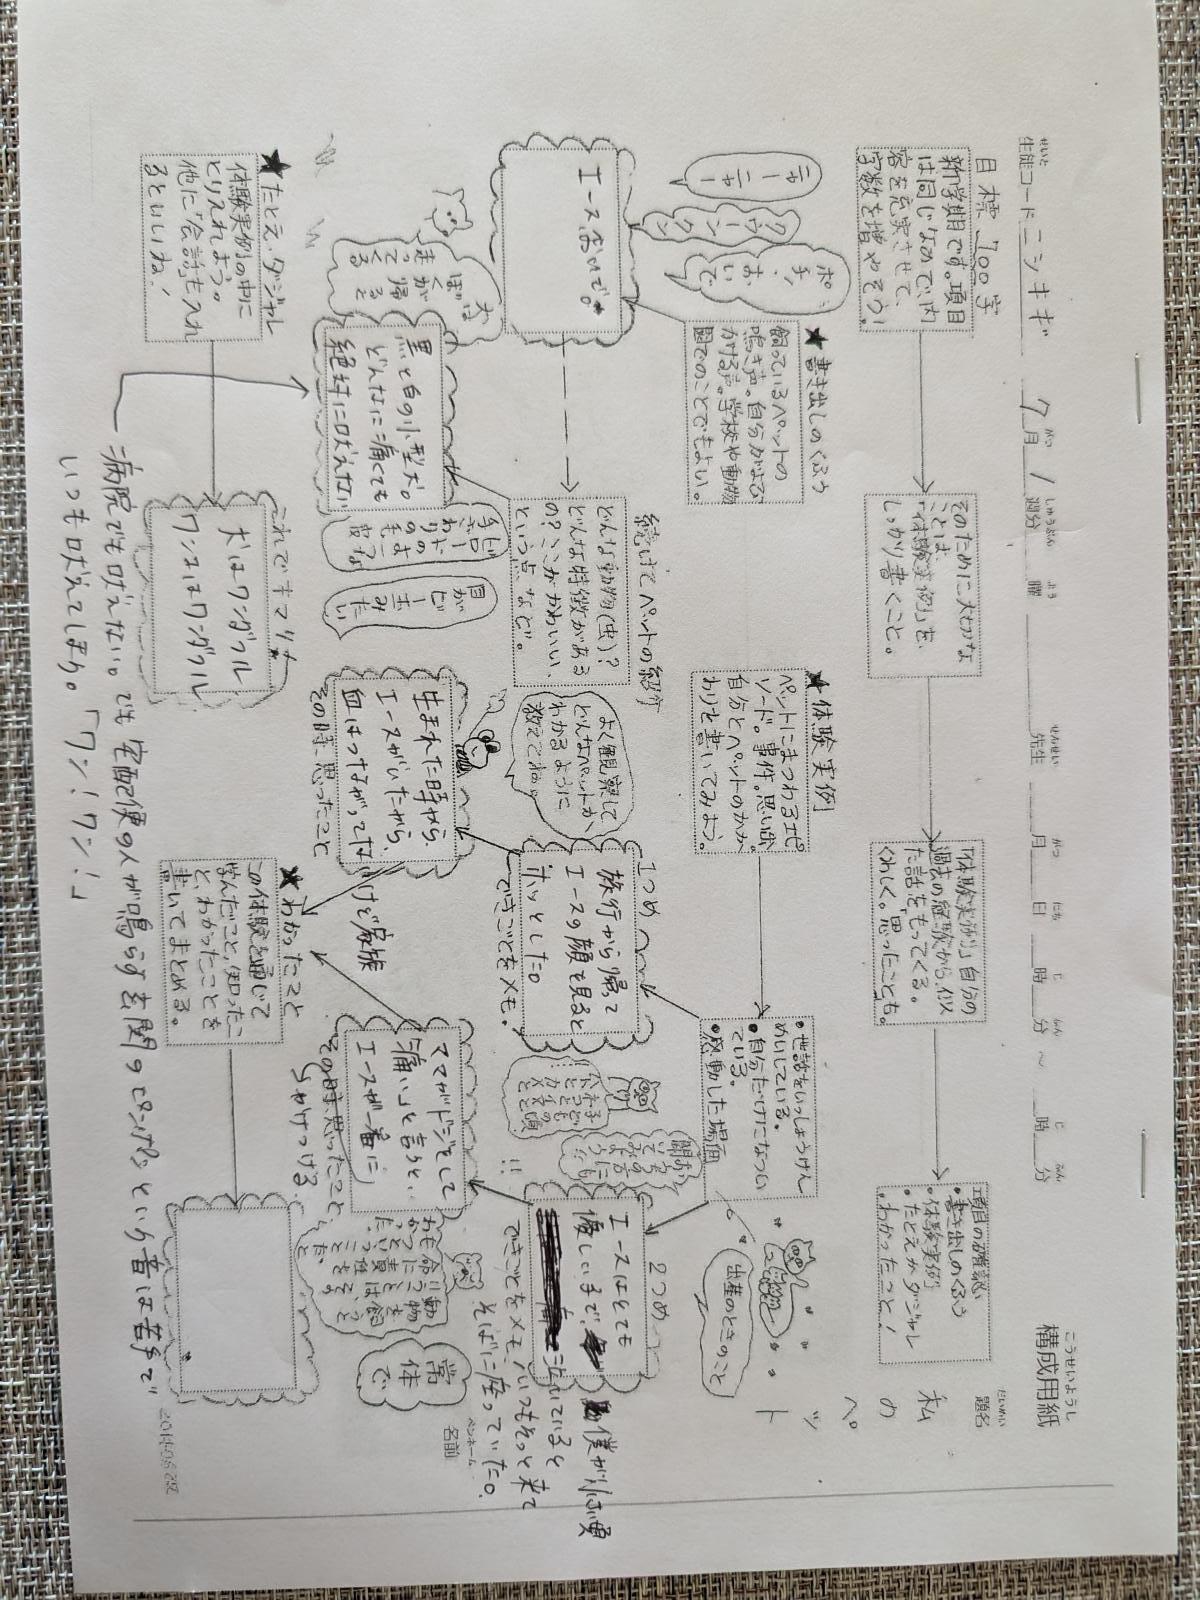 構成用紙
こうせいようし
生徒コード ニシキギ 7月 1週分 曜 先生 月 日 時 分 ~ 時 分
題名
だいめい
私のペット
目標 700字
新学期です。項目
は同じなので、内
容を充実させて、
字数を増やそう!
そのために大切な
ことは、
「体験実例」を、
しっかり書くこと。
「体験実例」自分の
過去の経験から似
た話をもってくる。
くわしく。思ったことも。
項目の確認
・書き出しのくふう
・体験実例
・たとえかダジャレ
・わかったこと!
★書き出しのくふう
飼っているペットの
鳴き声。自分がよぶ
かける声。学校や動物
園でのことでもよい。
ニャーニャー
クウーンクウン
ポチ、おいで
エースおいで。
続けてペットの紹介
どんな動物(虫)?
どんな特徴がある
の?ここがかわいい、
という点、など。
ぼくが帰ると走ってくる
黒と白の小型犬。
どんなに痛くても
絶対に吠えない
目がビー玉みたい
よく観察して
どんなペットか、
わかるように
教えてね。
★体験実例
ペットにまつわるエピ
ソード。事件。思い出。
自分とペットのかか
わりを書いてみよう。
・世話をいっしょうけん
めいしている。
・自分だけになつい
ている。
・感動した場面
出産のときのこと
1つめ
旅行から帰って
エースの顔を見ると
ホッとした。
できごとをメモ。
生まれた時から、
エースがいたから、
血はつながってないけど家族
その時思ったこと
2つめ
エースはとても
優しいまで、
僕が小1の頃
泣いていると
できごとをメモ
いつもそっと来て
そばに座っていた。
ママがドジをして
「痛い」と言うと、
エースが一番に
かけつける。
その時思ったこと
常体で
名前
ペンネーム
★たとえ・ダジャレ
体験実例の中に
とり入れよう。
他に「会話」も入れ
るといいね!
これでキマリ★
犬はワンダフル
ワンコはワンダフル
★わかったこと
この体験を通じて
学んだこと、知ったこ
と、わかったことを
書いてまとめる。
病院でも吠えない。でも宅配便の人が鳴らす玄関のピンポンという音は苦手で
いつも吠えてしまう。「ワン!ワン!」